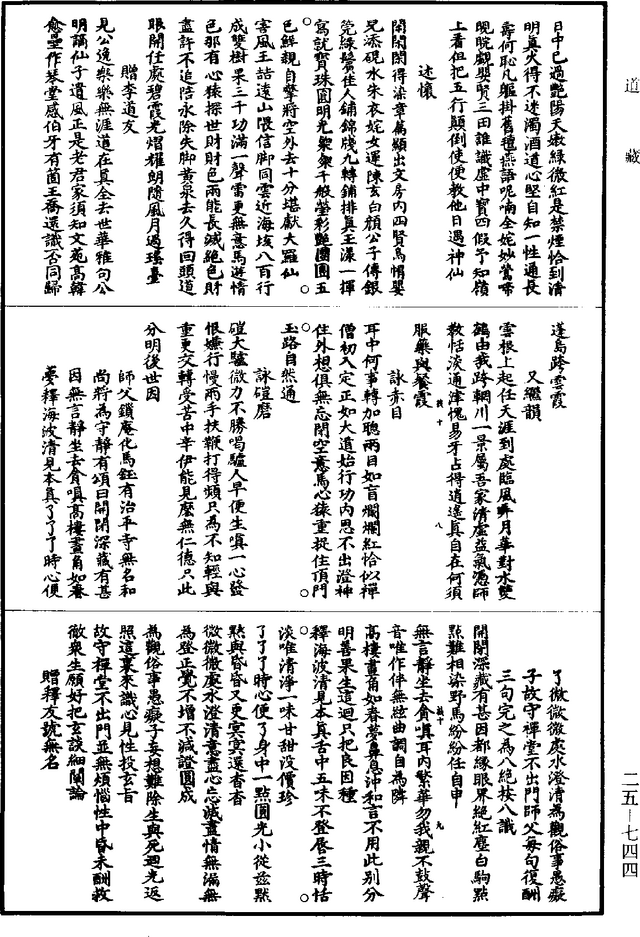 道藏
日中已過艷陽天嫩綠微紅是禁煙恰到清
明真火得不迷濁酒道心堅自知一性通長
壽何恥凡軀掛舊氈燕語呢喃全姹妙鶯啼
睍睆嬰賢三田誰識虛中寶四假予知嶺
上看但把五行顛倒使便教他日遇神仙
述懷
閑閑閑得染章萬顯出文房內四賢烏帽嬰
兒添硯水朱衣姹女運陳玄白頰公子傳銀
筦綠鬢佳人鋪錦牋九轉鋪排真玉漾一揮
寫就寶珠圓明光粲粲千般瑩彩艷團團五
色鮮親自擎將空外去十分堪獻大羅仙
害風王喆遠山隈信脚同雲近海垓八百行
成雙樹果三千功滿一聲雷更無意馬遊情
色那有心猿探世財財色兩能長滅絕色財
盡許不追陪永除失脚黃泉去久得回頭道
眼開任處碧霞光熠耀朗隨風月過瑤臺
贈李道友
見公逸樂樂無涯道在真全去世華雅句公
明謫仙子遺風正是老君家須知文苑高韓
愈壘作琴堂感伯牙有箇王喬還識否同歸
蓬島跨雲霞
又繼韻
雪根上起任天涯到處臨風弄月華對水雙
鵝由我跨輞川一景屬吾家清虛益氣憑師
教恬淡通津愧易牙占得逍遙真自在何須
服藥與餐霞
詠赤目
耳中何事轉加聰兩目如盲爛爛紅恰似禪
僧初入定正如大道始行功內思不出澄神
住外想俱無忘閉空意馬心猿重捉住頂門
玉路自然通
詠磑磨
磑大驢微力不勝喝驢人早便生嗔一心發
恨嫌行慢兩手扶鞭打得頻只為不知輕與
重更交轉受苦中辛伊能見麼無仁德只此
分明後世因
師父鎖庵化馬鈺有治平寺無名和
尚將為守靜有頌曰開閉深藏有甚
因無言靜坐去貪嗔高樓畫角如春
夢釋海波清見本真了了了時心便
了微微微處水澄清為觀俗事愚癡
子故守禪堂不出門師父每句復酬
三句完之為八絕按八識
開閉深藏有甚因都緣眼界絕紅塵白駒點
點難相染野馬紛紛任自申
無言靜坐去貪嗔耳內繁華勿我親不鼓聲
音唯作伴無絃曲調自為隣
高樓畫角如春夢鼻息沖和言不用此別分
明善果生這迴只把良因種
釋海波清見本真舌中五味不登唇三時恬
淡唯清淨一味甘甜沒價珍
了了了時心便了身中一點圓光小從茲點
點與昏昏又更冥冥還杳杳
微微微處水澄清意盡心忘滅盡情無漏無
為登正覺不增不減證圓成
為觀俗事愚癡子妄想難除生與死迴光返
照這裏來識心見性投玄旨
故守禪堂不出門並無煩惱性中昏未酬救
徹衆生願好把玄談細闡論
贈釋友號無名
二五—七四四